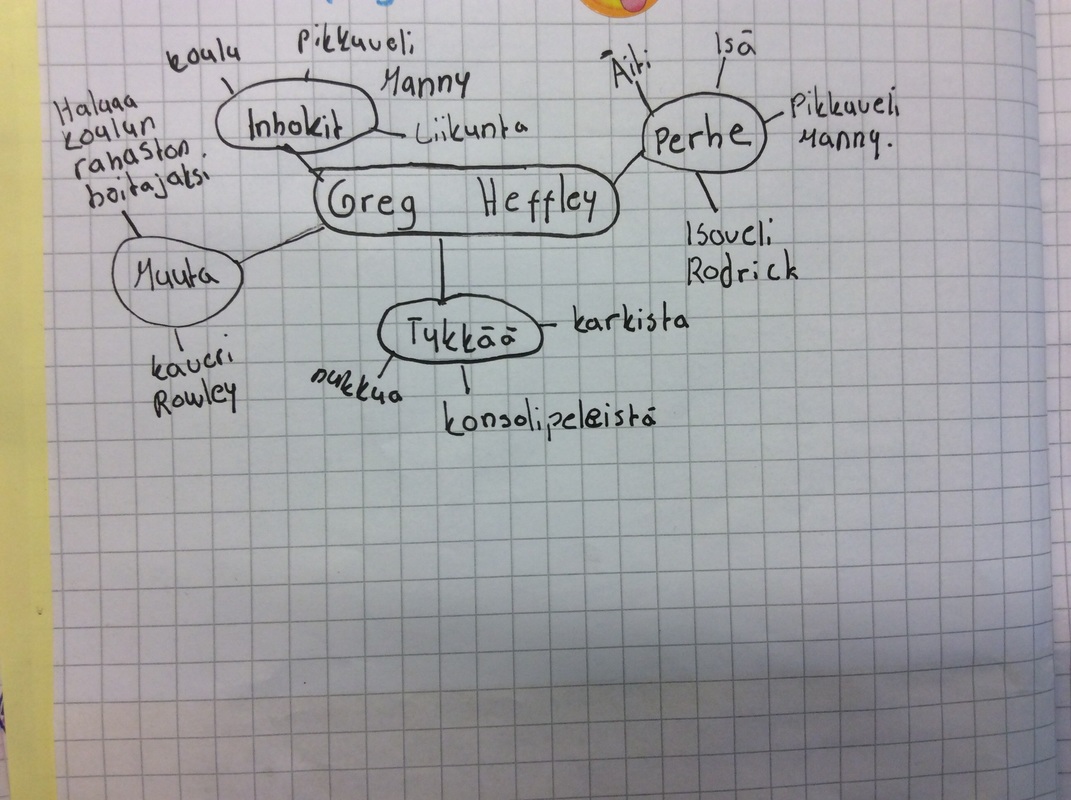 koulu
Pikkuveli
Manny
Inhokit
Liikunta
Haluaa
koulun
rahaston
hoitajaksi.
Äiti
Isä
Perhe
Pikkuveli
Manny.
Isoveli
Rodrick
Greg Heffley
Muuta
kaveri
Rowley
Tykkää
karkista
nukkua
konsolipeleistä